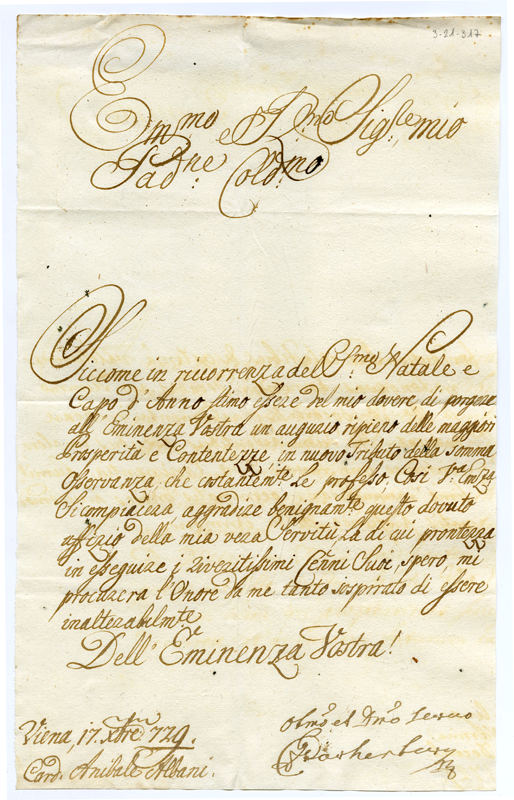 3-21-317
Em.mo e R.mo Sig.re mio
Pad.ne Col.mo
Siccome in ricorrenza del S.mo Natale e
Capo d'Anno stimo essere del mio dovere di porgere
all'Eminenza Vostra un augurio ripieno delle maggiori
Prosperità e Contentezze, in nuovo Tributo della somma
Osservanza, che costantem.te Le professo, Cosi V.ra Em.za
Si compiacerà aggradire benignam.te questo dovuto
uffizio della mia vera Servitù, la di cui prontezza
in esseguire i riveritissimi Cenni Suoi, spero, mi
procurerà l'Onore da me tanto sospirato di essere
inalterabilm.te
Dell'Eminenza Vostra!
Viena, 17. Xbre 729.
Card. Anibale Albani.
servo